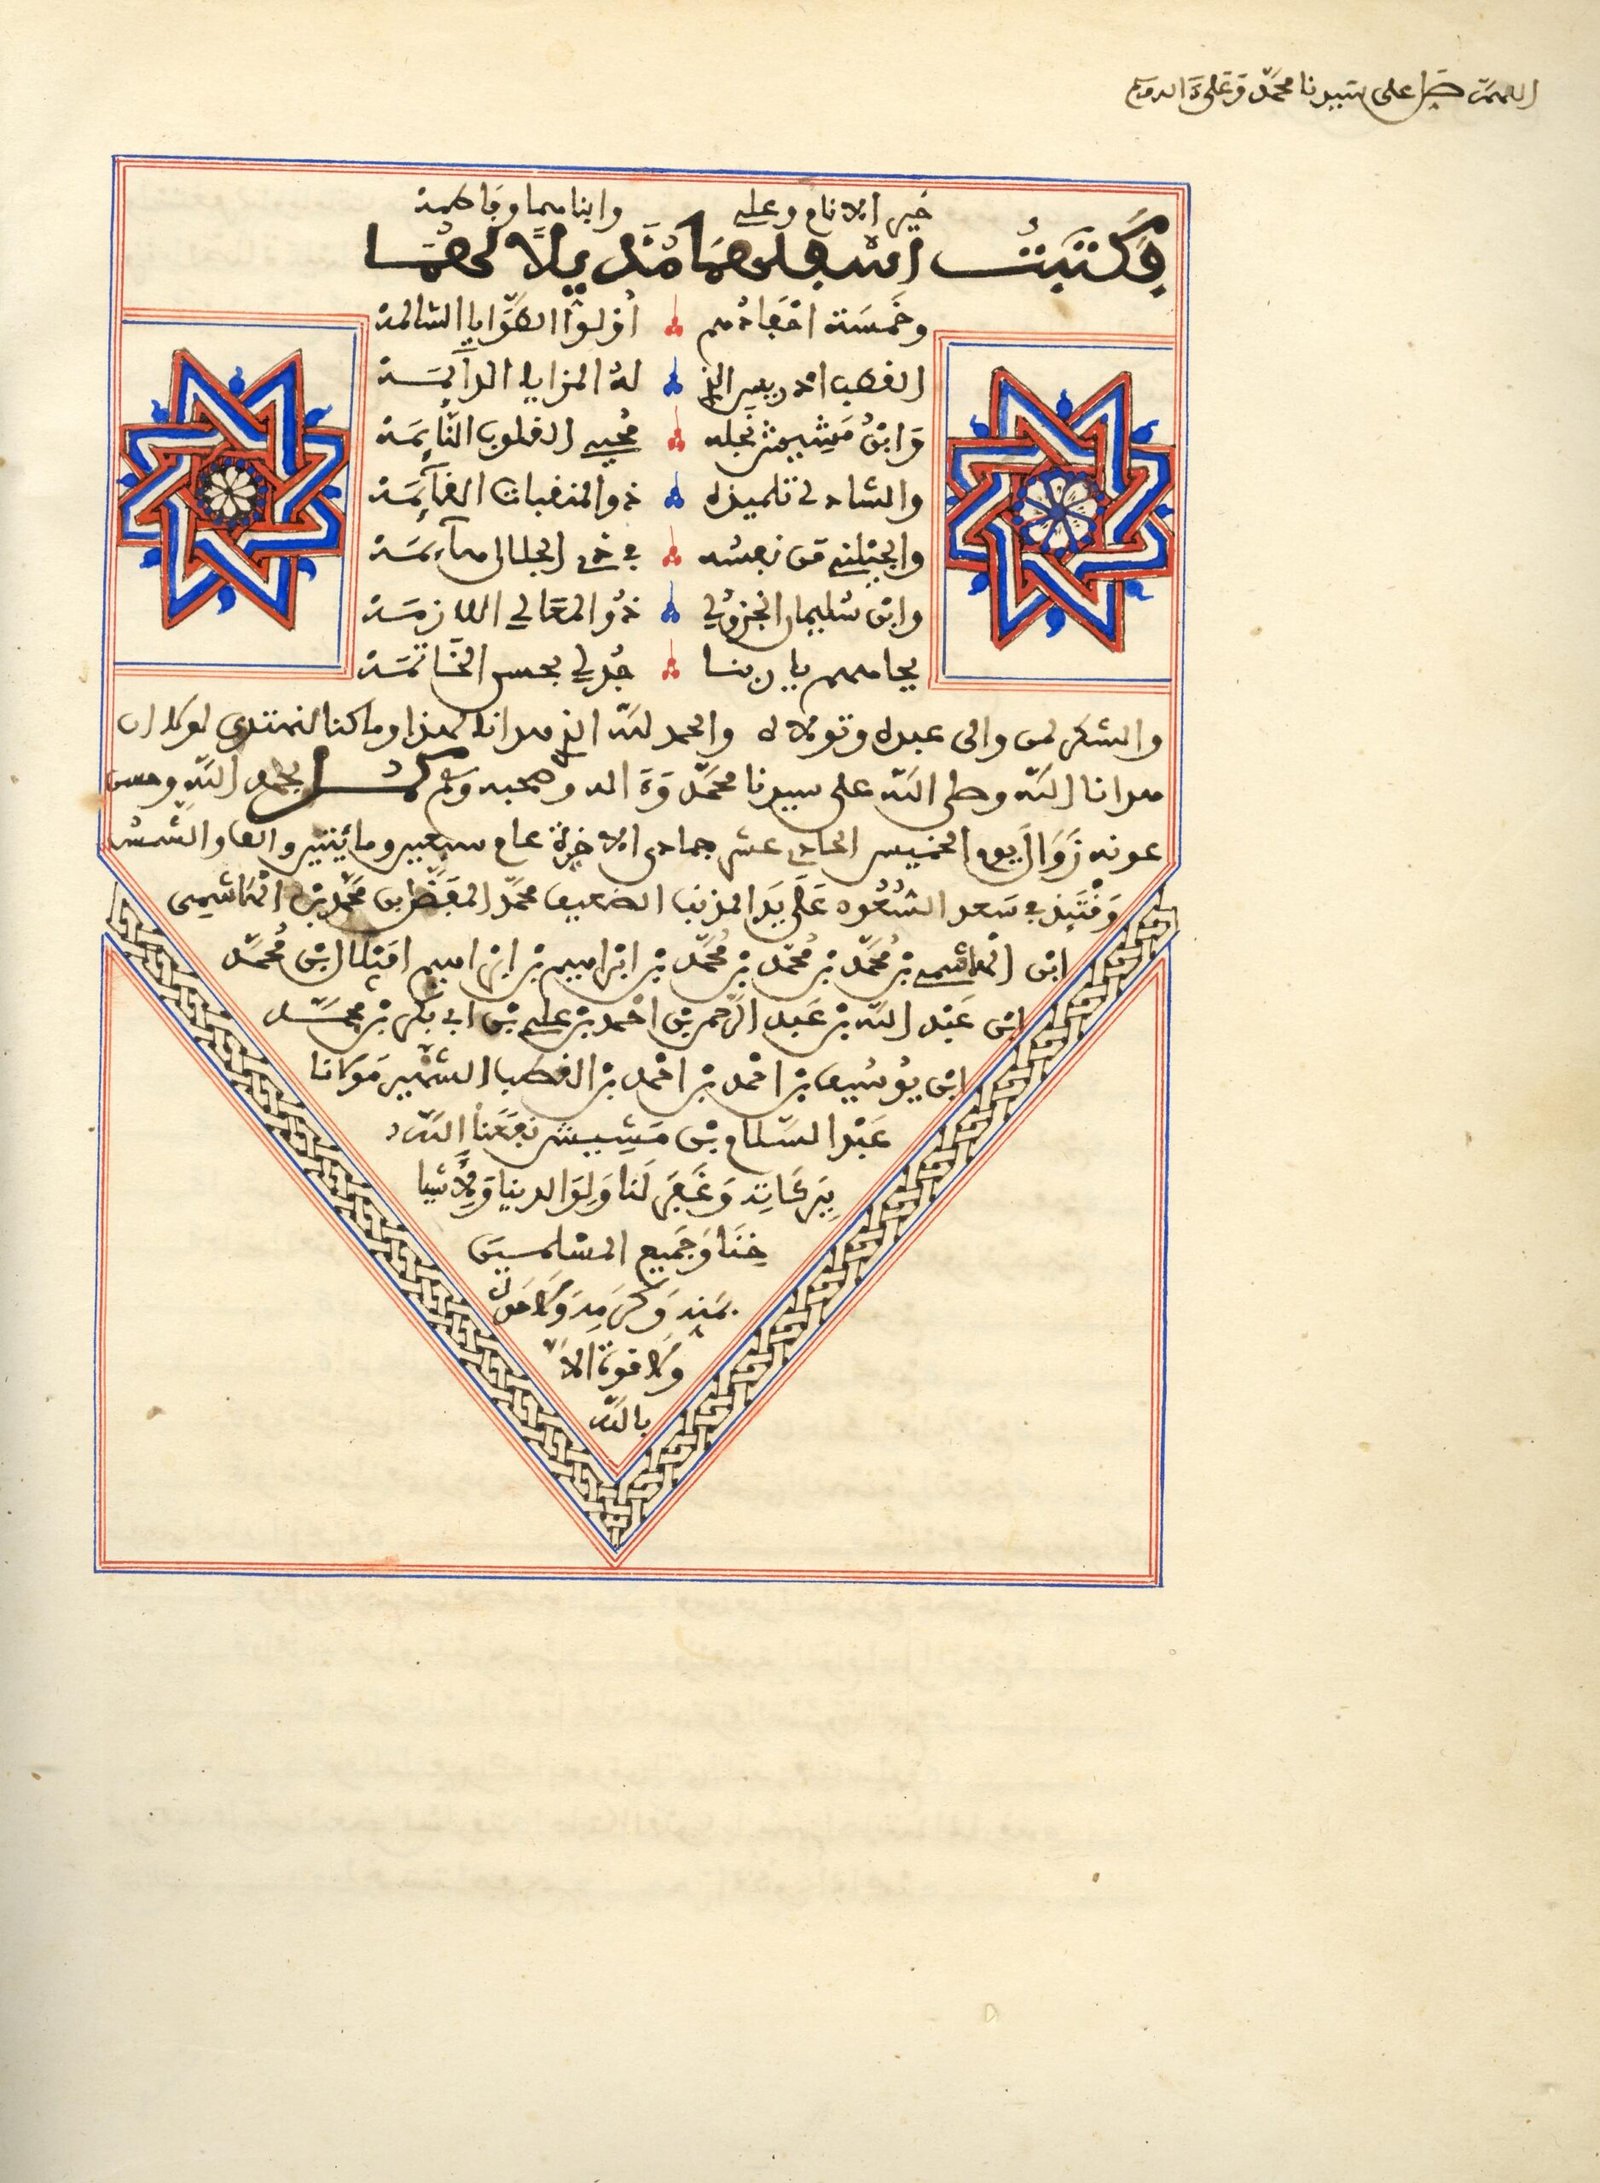 اللهم صل على سيدنا محمد وعلى اله
خير الانام وعلي وابناهما وفاطمة
فكتبت اسفلهما مذيلا لهما
وخمسة احفادهم اولوا الطوايا السالمة
القطب ادريس الذي له المزايا الدآيمة
وابن مشيش نجله محيي القلوب النآيمة
والشاذلي تلميذه ذو المنقبات القآيمة
والجيلني من نفسه في ذي الجلال هآيمة
وابن سليمان الجزولي ذو المعالي اللازمة
بجاههم يا ربنا جد لي بحسن الخاتمة
والشكر لمن والى عبده وتولاه له والحمد لله الذي هدانا لهذا وما كنا لنهتدي لولا ان
هدانا الله وصلى الله على سيدنا محمد وءاله وصحبه وسلم بحمد الله وحسن
عونه زوال يوم الخميس الحادي عشر جمادى الاخرة عام سبعين ومائيتين والف والشمس
وقتئذ في سعد السعود على يد المذنب الضعيف محمد المفضل بن محمد بن الهاشمي
ابن الهاشمي بن محمد بن محمد بن محمد بن ابراهيم بن ابراهيم ابن محمد
ابن عبد الله بن عبد الرحمن بن احمد بن علي بن ابي بكر بن محمد
ابن يوسف بن احمد بن احمد بن القطب الشهير مولانا
عبد السلام بن مشيش نفعنا الله
ببركاته وغفر لنا ولوالدينا ولاشيا
خنا وجميع المسلمين
بمنه وكرمه ولا حول
ولا قوة الا
بالله